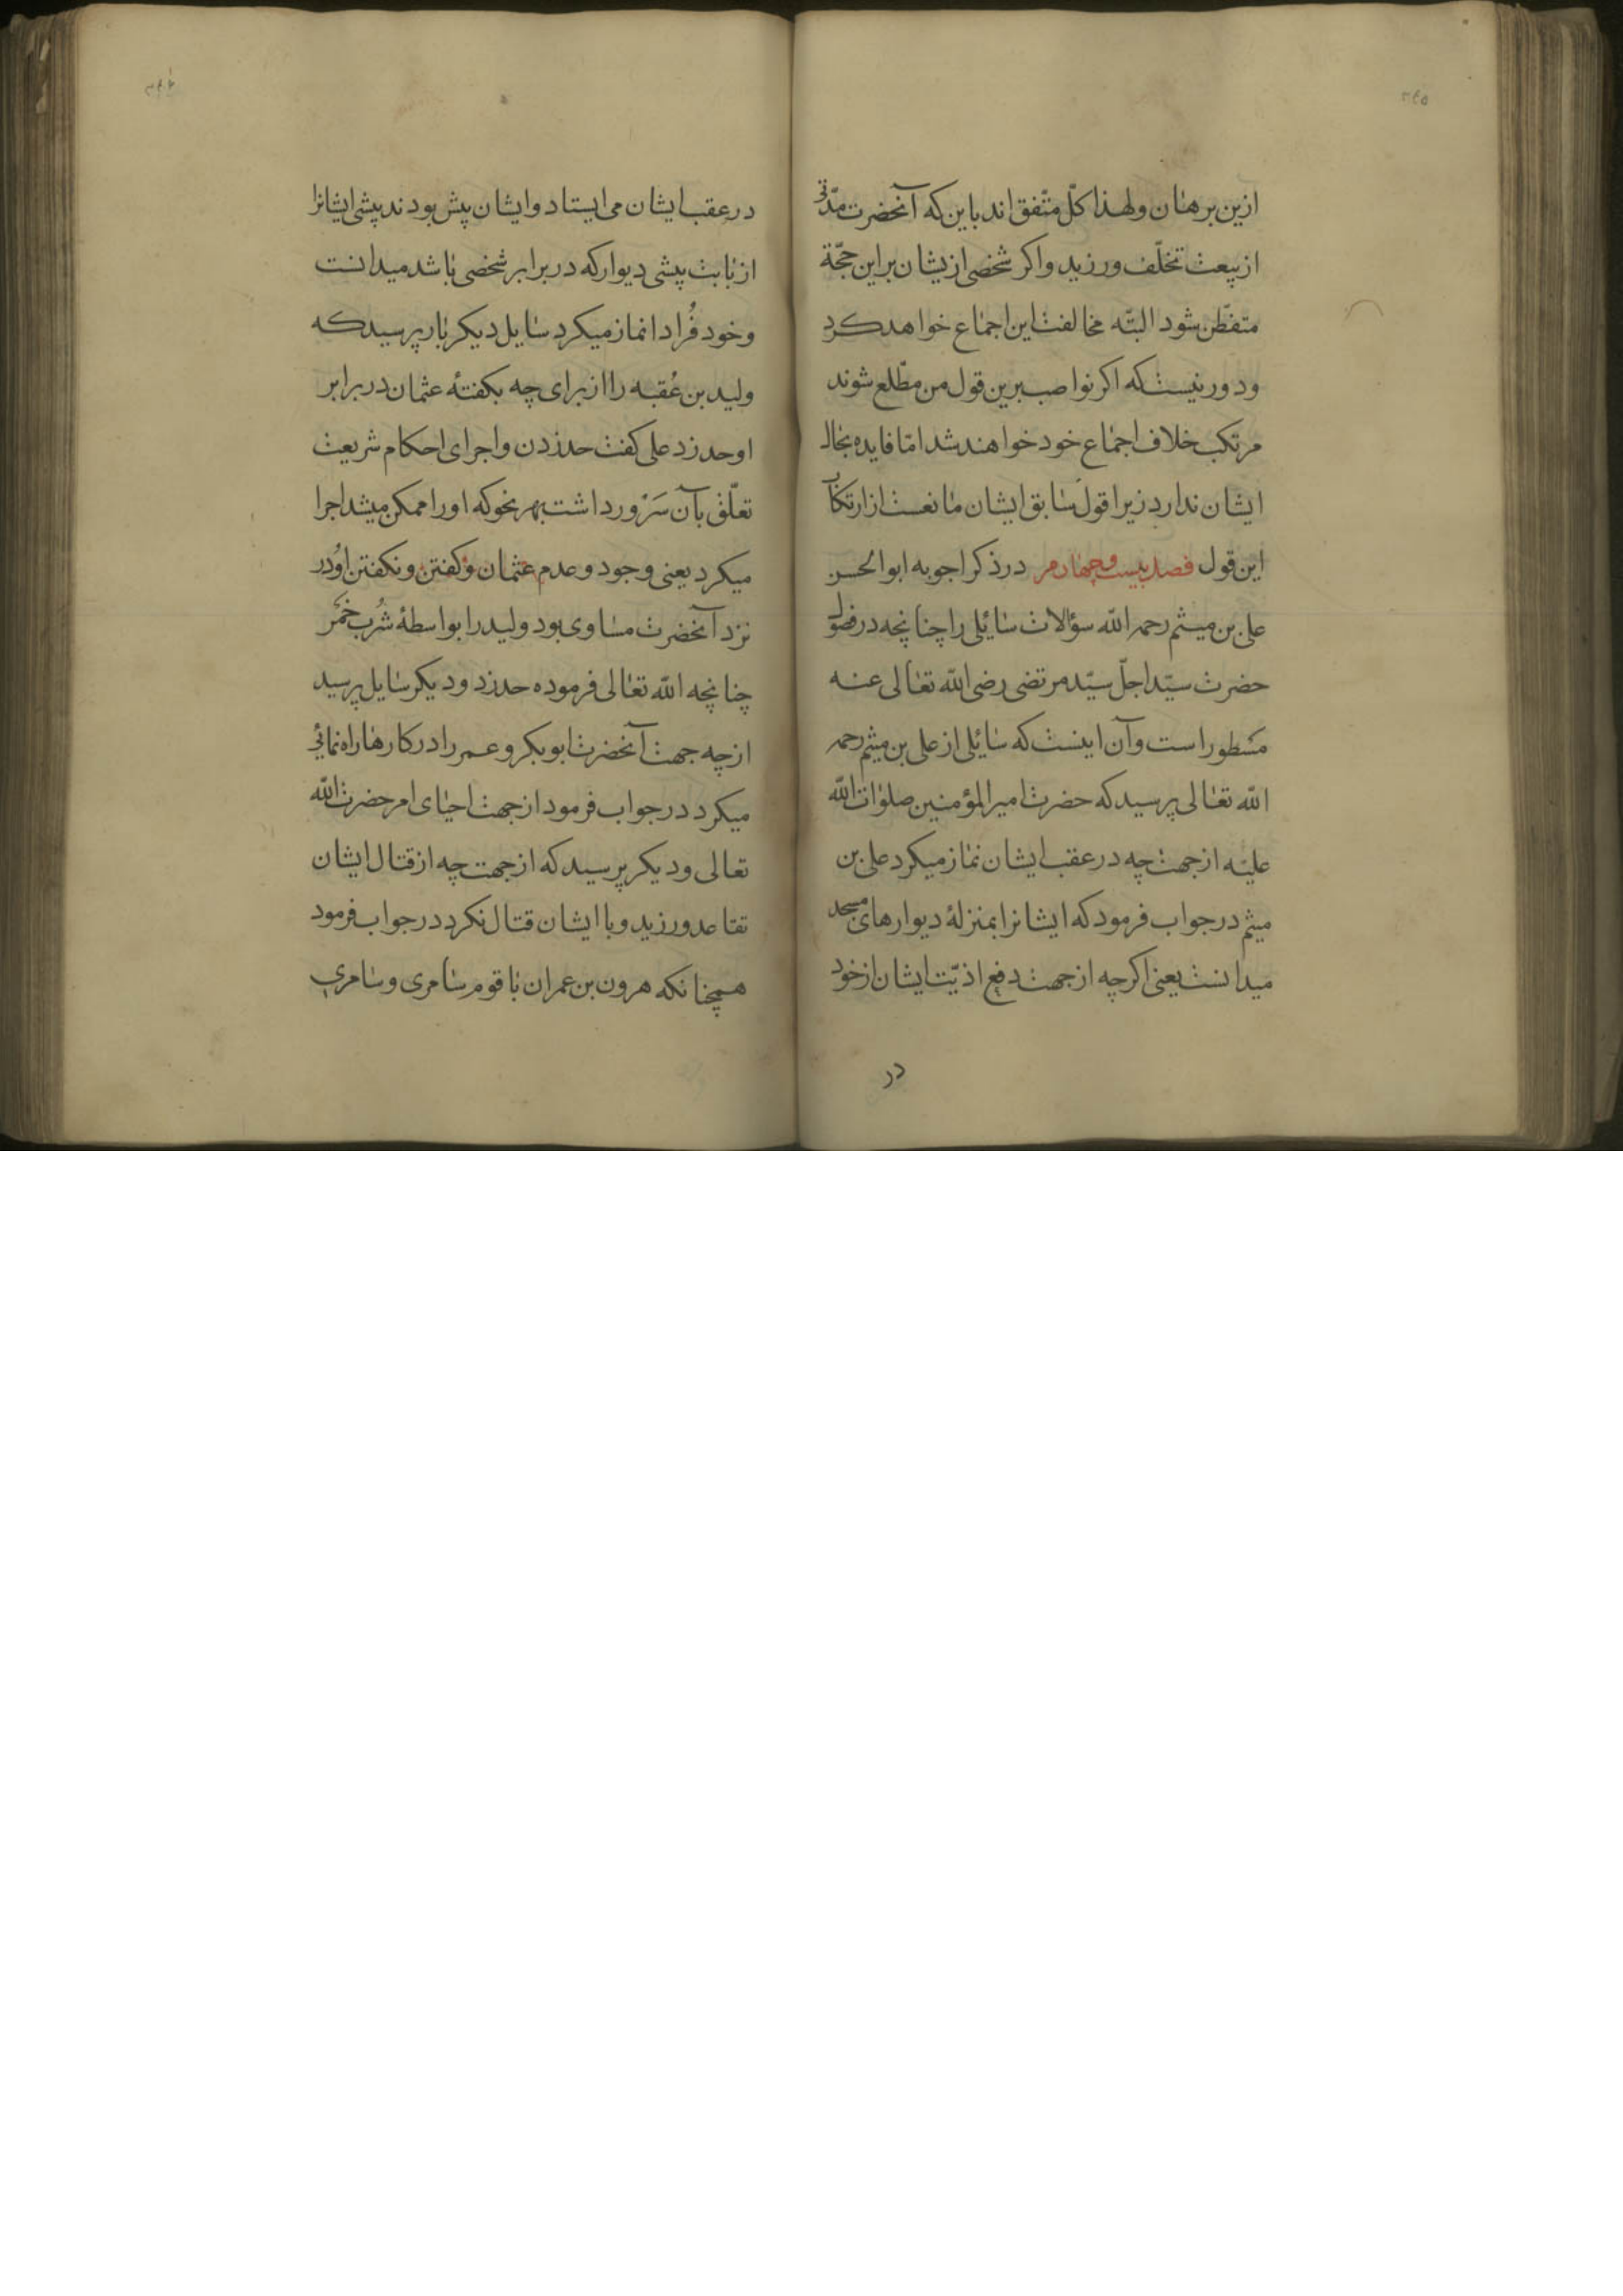 ازین برهان ولهذا کلّ متّفق اند باین که آنحضرت مدّتی
از بیعت تخلّف ورزید واکر شخصی ازیشان بر این حجّة
متفطّن شود البتّه مخالفت این اجماع خواهد کرد
ودور نیست که اکر نواصب برین قول من مطّلع شوند
مرتکب خلاف اجماع خود خواهند شد امّا فایده بحال
ایشان ندارد زیرا قول سابق ایشان مانعست از ارتکاب
این قول فصل بیست وچهارم در ذکر اجوبه ابوالحسن
علی بن میثم رحمه الله سؤالات سائلی را چنانچه در فصول
حضرت سیّد اجلّ سیّد مرتضی رضی الله تعالی عنه
مسطور است وآن اینست که سائلی از علی بن میثم رحمه
الله تعالی پرسید که حضرت امیرالمؤمنین صلوات الله
علیه از جهت چه در عقب ایشان نماز میکرد علی بن
میثم در جواب فرمود که ایشانرا بمنزلهٔ دیوارهای مسجد
میدانست یعنی اکرچه از جهت دفع اذیّت ایشان از خود
در
در عقب ایشان می ایستاد وایشان پیش بودند پیشی ایشانرا
از بابت پیشی دیوار که در برابر شخصی باشد میدانست
وخود فُرادا نماز میکرد سایل دیکر بار پرسید که
ولید بن عُقبه را از برای چه بکفتهٔ عثمان در برابر
او حد زد علی کفت حد زدن واجرای احکام شریعت
تعلّق بآن سَرْور داشت بهر نحو که او را ممکن میشد اجرا
میکرد یعنی وجود وعدم عثمان وکفتن ونکفتن او در
نزد آنحضرت مساوی بود ولید را بواسطهٔ شُرب خَمر
چنانچه الله تعالی فرموده حد زد ودیکر سایل پرسید
از چه جهت آنحضرت ابوبکر وعمر را در کارها راه نمائی
میکرد در جواب فرمود از جهت احیای امر حضرت الله
تعالی ودیکر پرسید که از جهت چه از قتال ایشان
تقاعد ورزید وبا ایشان قتال نکرد در جواب فرمود
همچنانکه هرون بن عمران با قوم سامری وسامری